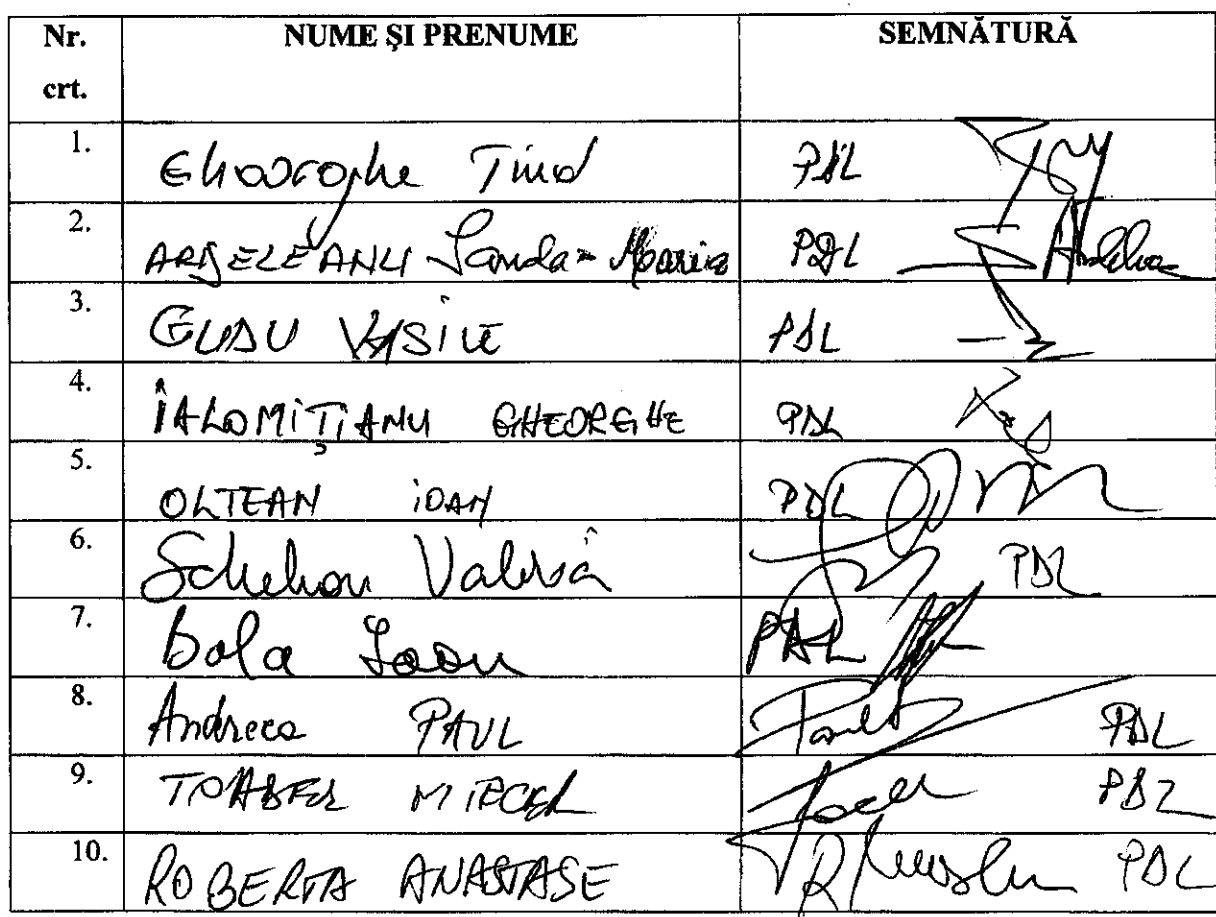 Nr. crt. NUME ȘI PRENUME SEMNĂTURĂ
1. Gheorghe Tinel PDL
2. ARDELEANU Sanda-Maria PDL
3. GUDU VASILE PDL
4. IALOMIȚIANU GHEORGHE PDL
5. OLTEAN IOAN PDL
6. Schelean Valeria PDL
7. Bala Ioan PDL
8. Andreea PAUL PDL
9. TOADER MIRCEA PDL
10. ROBERTA ANASTASE PDL